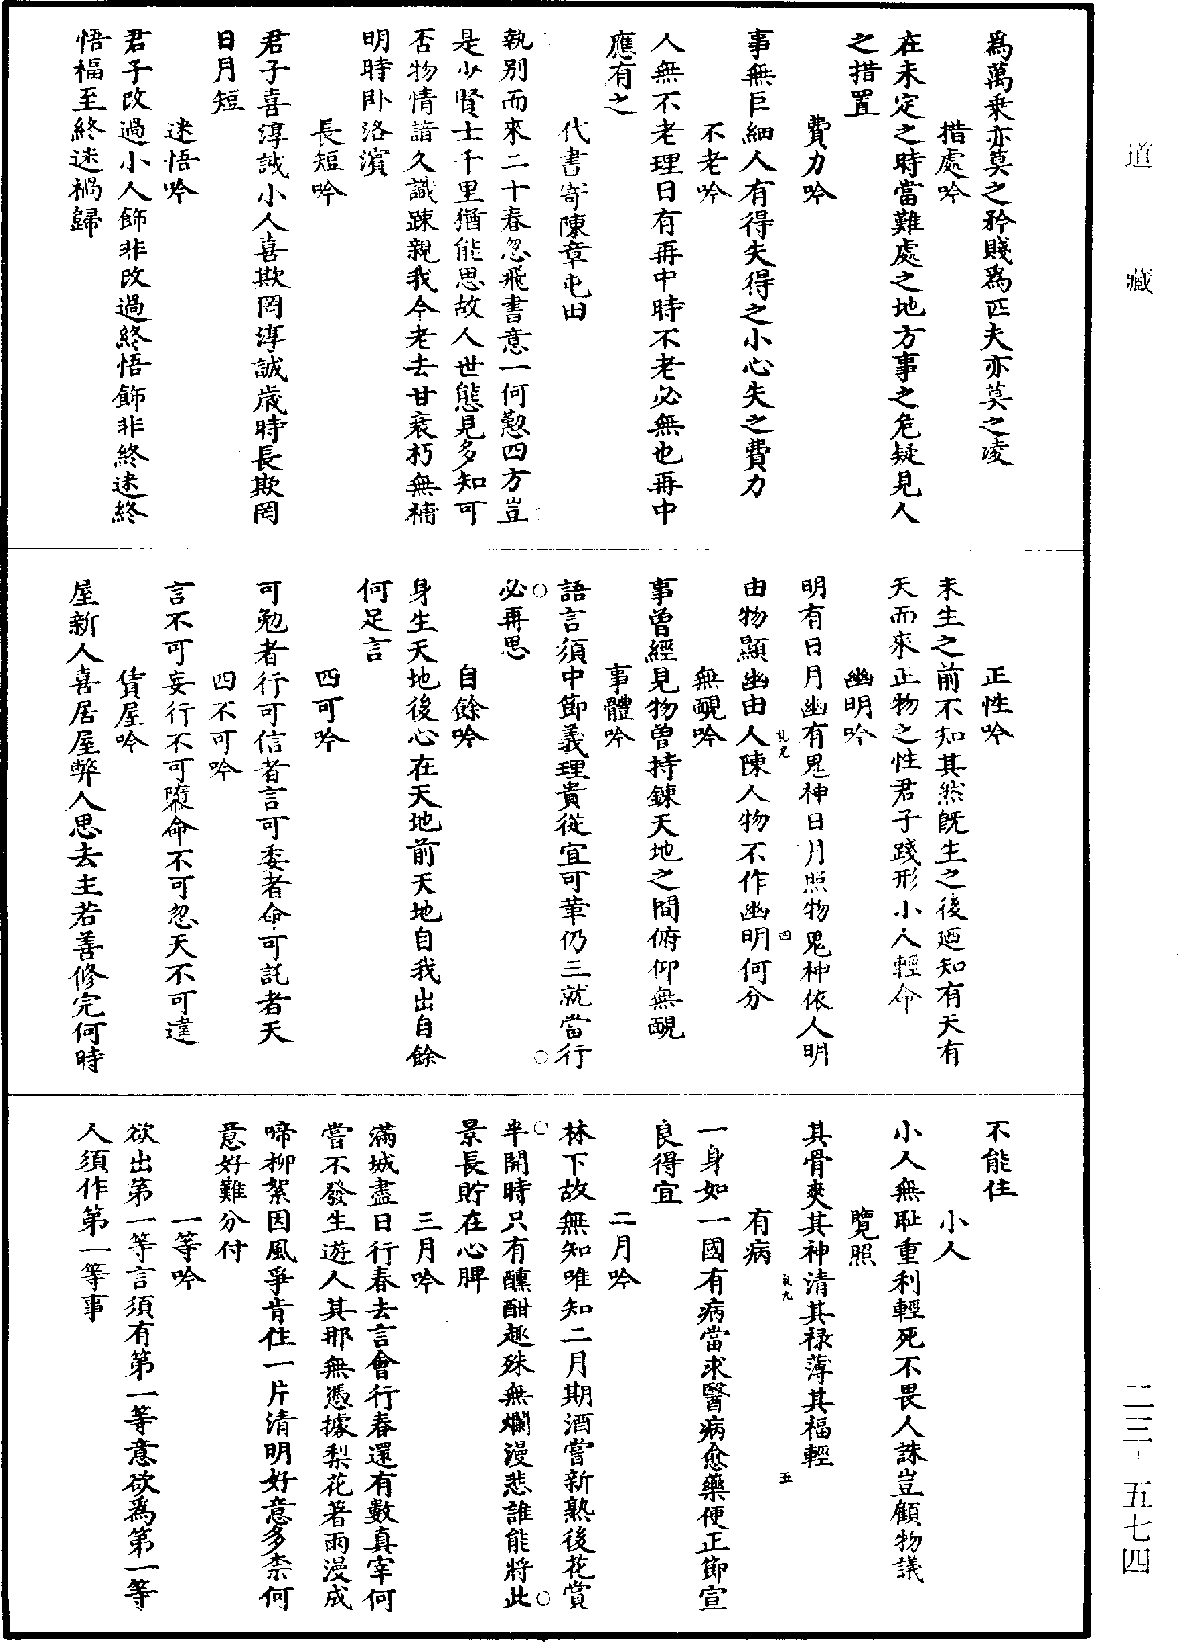 道藏
二三-五七四
為萬乘亦莫之矜賤為匹夫亦莫之凌
措處吟
在未定之時當難處之地方事之危疑見人
之措置
費力吟
事無巨細人有得失得之小心失之費力
不老吟
人無不老理日有再中時不老必無也再中
應有之
代書寄陳章屯田
執別而來二十春忽飛書意一何懃四方豈
是少賢士千里猶能思故人世態見多知可
否物情諳久識踈親我今老去甘衰朽無補
明時卧洛濱
長短吟
君子喜淳誠小人喜欺罔淳誠歲時長欺罔
日月短
迷悟吟
君子改過小人飾非改過終悟飾非終迷終
悟福至終迷禍歸
正性吟
未生之前不知其然既生之後廼知有天有
天而來正物之性君子踐形小人輕命
幽明吟
明有日月幽有鬼神日月照物鬼神依人明
由物顯幽由人陳人物不作幽明何分
四
無靦吟
事曾經見物曾持鍊天地之間俯仰無靦
事體吟
語言須中節義理貴從宜可革仍三就當行
必再思
自餘吟
身生天地後心在天地前天地自我出自餘
何足言
四可吟
可勉者行可信者言可委者命可託者天
四不可吟
言不可妄行不可隳命不可忽天不可違
賃屋吟
屋新人喜居屋弊人思去主若善修完何時
不能住
小人
小人無耻重利輕死不畏人誅豈顧物議
覽照
其骨爽其神清其祿薄其福輕
五
有病
一身如一國有病當求醫病愈藥便正節宣
良得宜
二月吟
林下故無知唯知二月期酒嘗新熟後花賞
半開時只有醺酣趣殊無爛漫悲誰能將此
景長貯在心脾
三月吟
滿城盡日行春去言會行春還有數真宰何
嘗不發生遊人其那無憑據梨花著雨漫成
啼柳絮因風爭肯住一片清明好意多柰何
意好難分付
一等吟
欲出第一等言須有第一等意欲為第一等
人須作第一等事